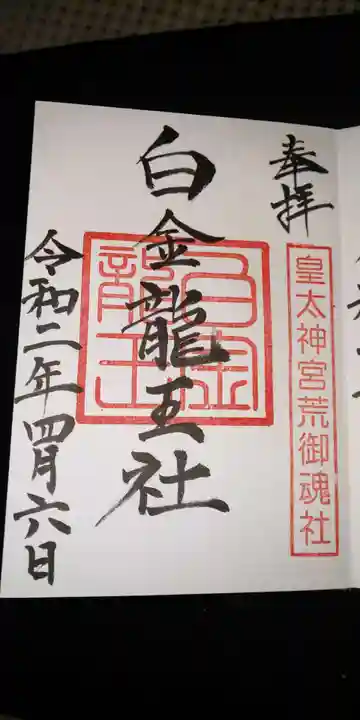 奉拝
皇太神宮荒御魂社
白金龍王社
白金
龍王
令和二年四月六日